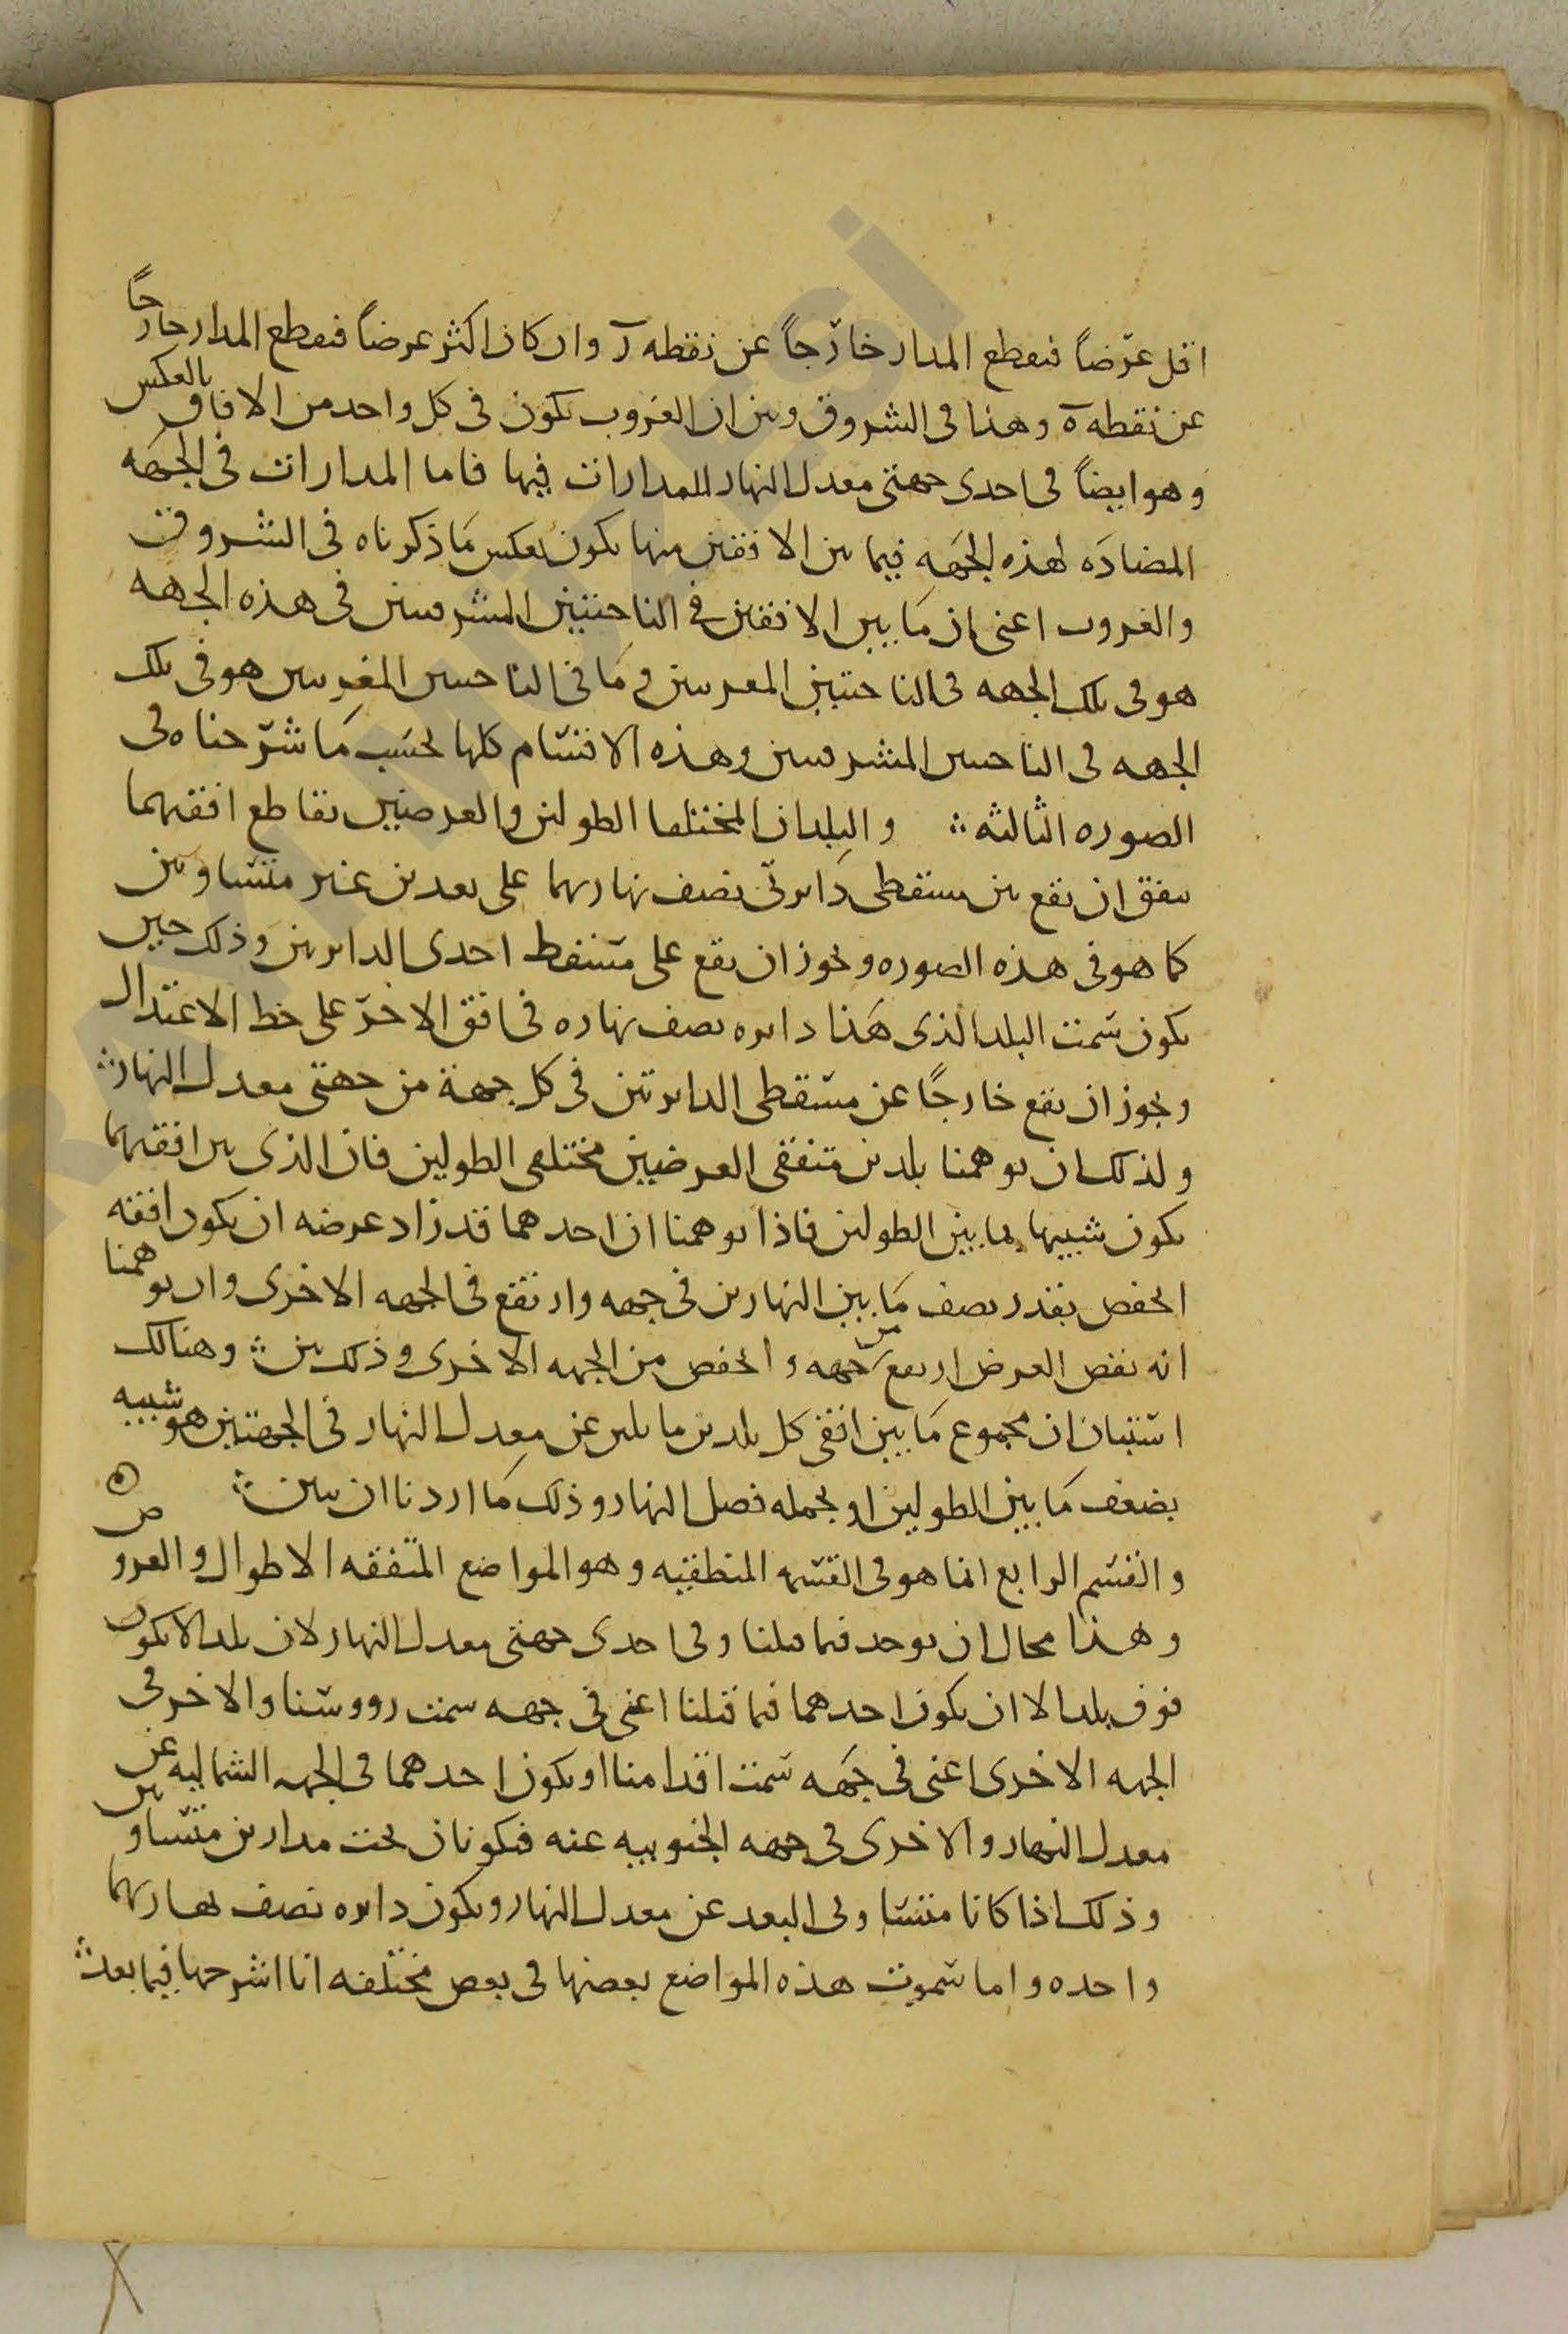 اقل عرضاً فيقطع المدار خارجاً عن نقطه ر وان كان اكثر عرضاً فيقطع المدار خارجاً
عن نقطه ه وهذا فى الشروق وبين ان الغروب يكون فى كل واحد من الافاق بالعكس
وهو ايضاً فى احدى جهتى معدل النهار للمدارات فيها فاما المدارات فى الجهه
المضاده لهذه الجهه فيما بين الافقين منها يكون بعكس ما ذكرناه فى الشروق
والغروب اعنى ان ما بين الافقين فى الناحيتين المشرقيتين فى هذه الجهه
هو فى تلك الجهه فى الناحيتين المغربيتين وما فى الناحيتين المغربيتين هو فى تلك
الجهه فى الناحيتين المشرقيتين وهذه الاقسام كلها بحسب ما شرحناه فى
الصوره الثالثه ؞ والبلدان المختلفا الطولين والعرضين تقاطع افقيهما
يتفق ان يقع بين مسقطى دايرتى نصف نهاريهما على بعدين غير متساويين
كما هو فى هذه الصوره ويجوز ان يقع على مسقط احدى الدايرتين وذلك حين
يكون سمت البلد الذى هذا دايره نصف نهاره فى افق الاخر على خط الاعتدال
ويجوز ان يقع خارجاً عن مسقطى الدايرتين فى كل جهة من جهتى معدل النهار ؞
ولذلك ان توهمنا بلدين متفقى العرضين مختلفى الطولين فان الذى بين افقيهما
يكون شبيها بما بين الطولين فاذا توهمنا ان احدهما قد زاد عرضه ان يكون افقه
انخفض بقدر نصف ما بين النهارين فى جهه وارتفع فى الجهه الاخرى وان توهمنا
انه نقص العرض ارتفع من جهه وانخفض من الجهه الاخرى وذلك بين ؞ وهنالك
استبان ان مجموع ما بين افقى كل بلدين مايلين عن معدل النهار فى الجهتين هو شبيه
بضعف ما بين الطولين او بجمله فصل النهار وذلك ما اردنا ان نبين ؞
والقسم الرابع انما هو فى القسمه المنطقيه وهو المواضع المتفقه الاطوال والعروض
وهذا محال ان يوجد فيما قبلنا وفى احدى جهتى معدل النهار لان بلدا لا يكون
فوق بلد الا ان يكون احدهما فيما قبلنا اعنى فى جهه سمت رووسنا والاخر فى
الجهه الاخرى اعنى فى جهه سمت اقدامنا او يكون احدهما فى الجهه الشماليه عن
معدل النهار والاخرى فى جهه الجنوبيه عنه فيكونان تحت مدارين متساويين
وذلك اذا كانا متساوى البعد عن معدل النهار ويكون دايره نصف نهاريهما
واحده واما سموت هذه المواضع بعضها فى بعض مختلفه انا اشرحها فيما بعد ؞